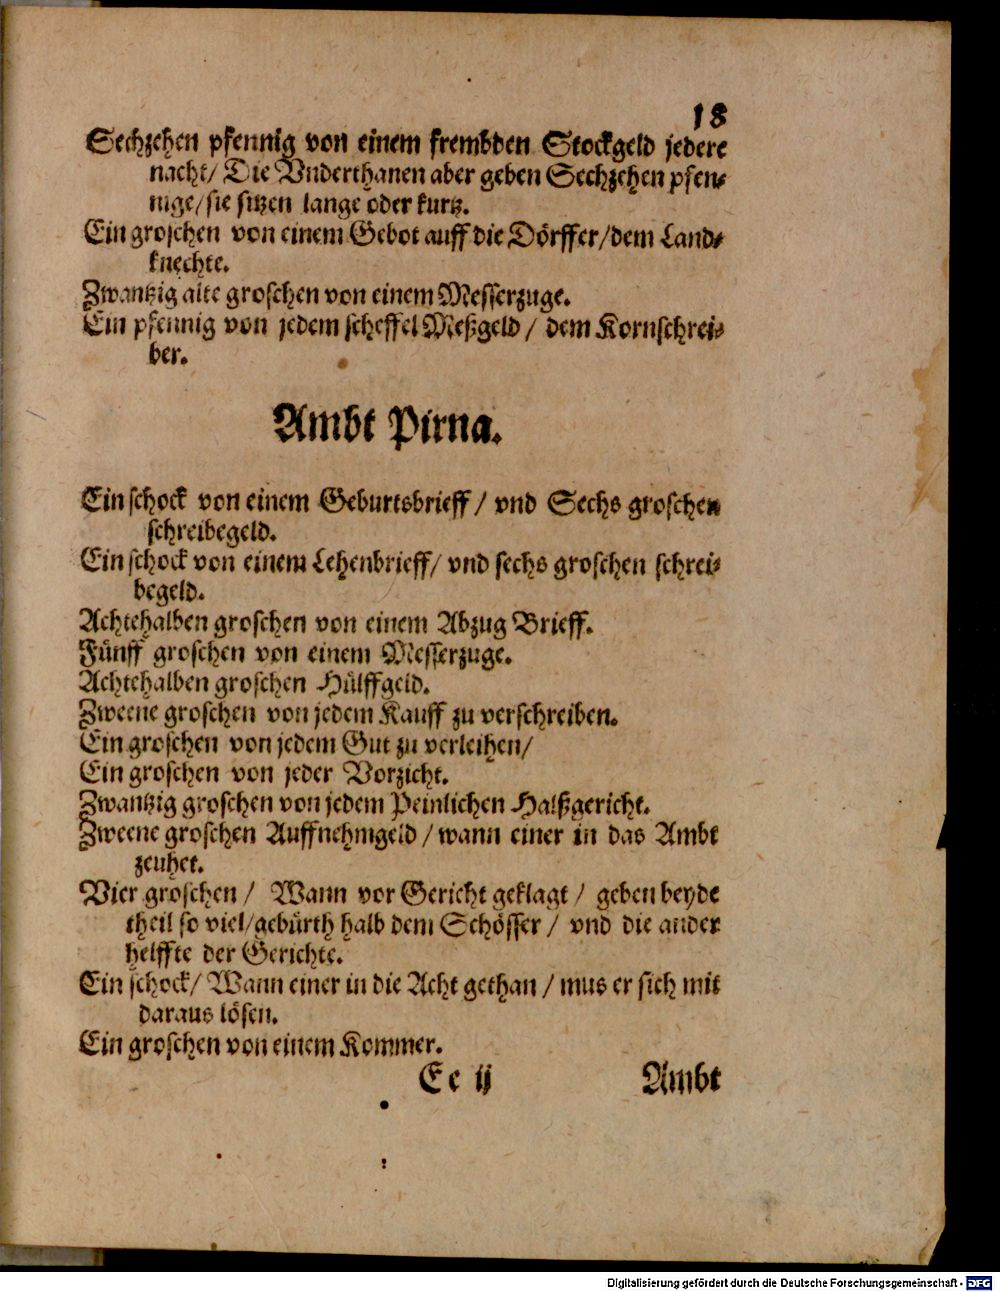 18
Sechzehen pfennig von einem frembden Stockgeld jedere
nacht/ Die Vnderthanen aber geben Sechzehen pfen⸗
nige/sie sitzen lange oder kurtz.
Ein groschen von einem Gebot auff die Dörffer/dem Land⸗
knechte.
Zwantzig alte groschen von einem Messerzuge.
Ein pfennig von jedem scheffel Meßgeld/ dem Kornschrei⸗
ber.
Ambt Pirna.
Ein schock von einem Geburtsbrieff/ vnd Sechs groschen
schreibegeld.
Ein schock von einem Lehenbrieff/ vnd sechs groschen schrei⸗
begeld.
Achtehalben groschen von einem Abzug Brieff.
Fünff groschen von einem Messerzuge.
Achtehalben groschen Hülffgeld.
Zweene groschen von jedem Kauff zu verschreiben.
Ein groschen von jedem Gut zu verleihen/
Ein groschen von jeder Vorzicht.
Zwantzig groschen von jedem Peinlichen Halßgericht.
Zweene groschen Auffnehmgeld/wann einer in das Ambt
zeuhet.
Vier groschen/ Wann vor Gericht geklagt/ geben beyde
theil so viel/gebürth halb dem Schösser/ vnd die ander
helffte der Gerichte.
Ein schock/ Wann einer in die Acht gethan/mus er sich mit
daraus lösen.
Ein groschen von einem Kommer.
Ee ij Ambt
Digitalisierung gefördert durch die Deutsche Forschungsgemeinschaft - DFG